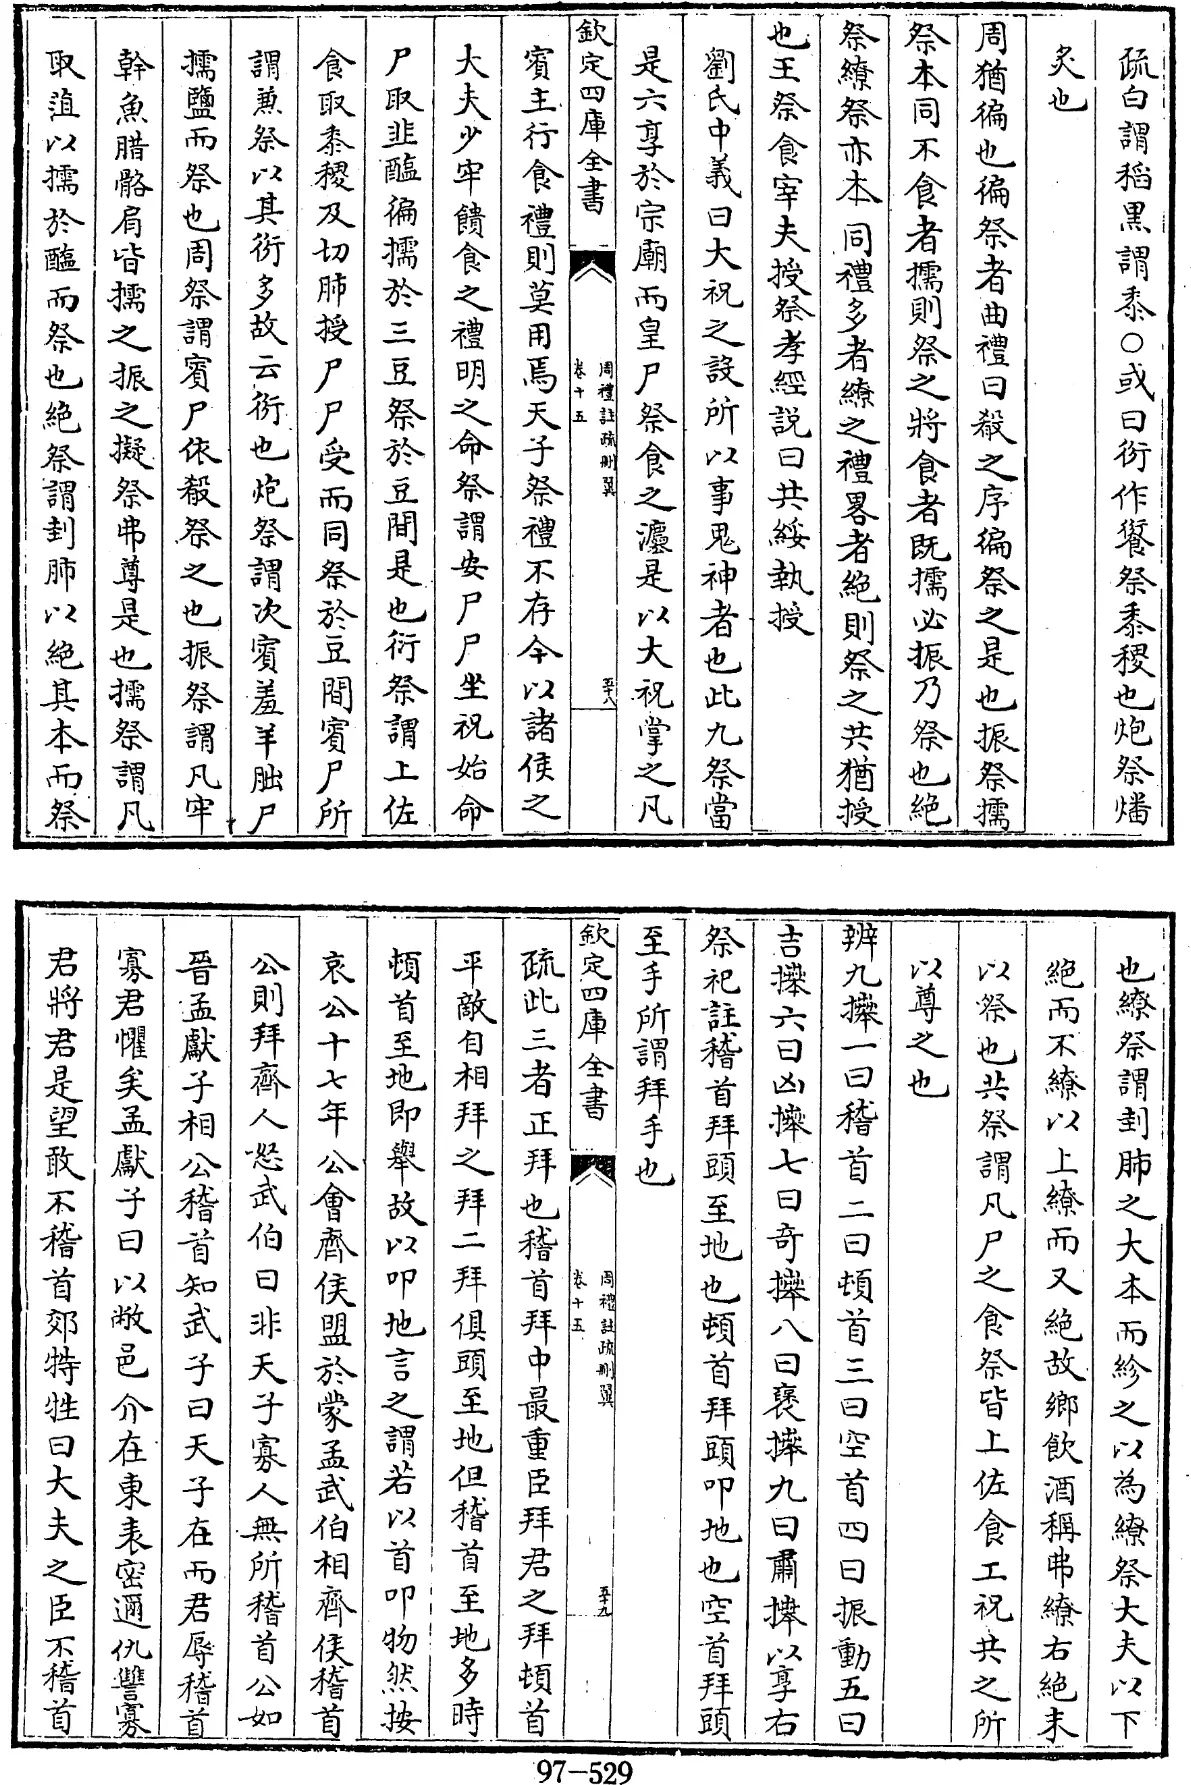 疏白謂稻黑謂黍○或曰衍作餐祭黍稷也炮祭燔
炙也
周猶徧也徧祭者曲禮曰殽之序徧祭之是也振祭擩
祭本同不食者擩則祭之將食者既擩必振乃祭也絶
祭繚祭亦本同禮多者繚之禮畧者絶則祭之共猶授
也王祭食宰夫授祭孝經説曰共綏執授
劉氏中義曰大祝之設所以事鬼神者也此九祭當
是六享於宗廟而皇尸祭食之灋是以大祝掌之凡
欽定四庫全書
周禮註疏刪翼
卷十五
五十八
賓主行食禮則莫用焉天子祭禮不存今以諸侯之
大夫少牢饋食之禮明之命祭謂安尸尸坐祝始命
尸取韭醢徧擩於三豆祭於豆間是也衍祭謂上佐
食取黍稷及切肺授尸尸受而同祭於豆間賓尸所
謂兼祭以其衍多故云衍也炮祭謂次賓羞羊朏尸
擩鹽而祭也周祭謂賓尸依殽祭之也振祭謂凡牢
幹魚腊骼肩皆擩之振之擬祭弗尊是也擩祭謂凡
取菹以擩於醢而祭也絶祭謂刲肺以絶其本而祭
也繚祭謂刲肺之大本而紾之以為繚祭大夫以下
絶而不繚以上繚而又絶故鄉飲酒稱弗繚右絶末
以祭也共祭謂凡尸之食祭皆上佐食工祝共之所
以尊之也
辨九㨷一曰稽首二曰頓首三曰空首四曰振動五曰
吉㨷六曰凶㨷七曰奇㨷八曰褒㨷九曰肅㨷以享右
祭祀註稽首拜頭至地也頓首拜頭叩地也空首拜頭
至手所謂拜手也
欽定四庫全書
周禮註疏刪翼
卷十五
五十九
疏此三者正拜也稽首拜中最重臣拜君之拜頓首
平敵自相拜之拜二拜俱頭至地但稽首至地多時
頓首至地即舉故以叩地言之謂若以首叩物然按
哀公十七年公會齊侯盟於蒙孟武伯相齊侯稽首
公則拜齊人怒武伯曰非天子寡人無所稽首公如
晉孟獻子相公稽首知武子曰天子在而君辱稽首
寡君懼矣孟獻子曰以敝邑介在東表密邇仇讐寡
君將君是望敢不稽首郊特牲曰大夫之臣不稽首
97-529